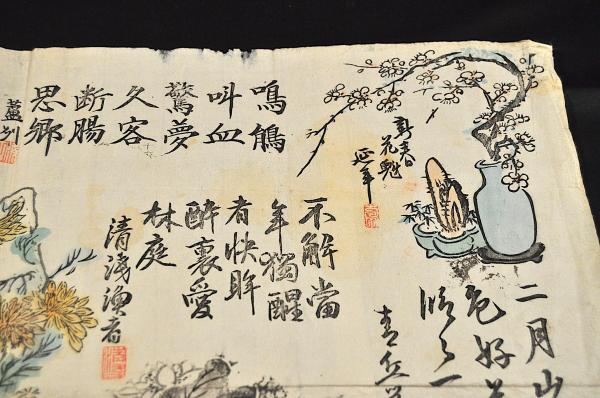 新春
花魁
延年
鳴鵑
叫血
驚夢
久客
断腸
思郷
不解當
年獨醒
者快眸
醉裏愛
林庭
清浅漁者
二月山
色好